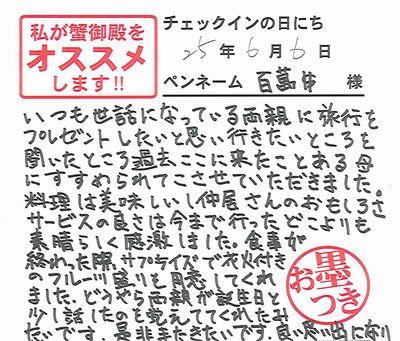 私が蟹御殿を
オススメ
します!!
チェックインの日にち
25年6月6日
ペンネーム 様
いつも世話になっている両親に旅行を
プレゼントしたいと思い行きたいところを
聞いたところ過去ここに来たことある母
にすすめられてこさせていただきました。
料理は美味しいし仲居さんのおもしろさ
サービスの良さは今まで行ったどこよりも
素晴らしく感激しました。食事が
終わった際、サプライズで花火付き
のフルーツ盛りを用意してくれ
ました。どうやら両親が誕生日と
少し話したのを覚えててくれたみ
たいです。是非またきたいです。良い思い出になり
お墨つき